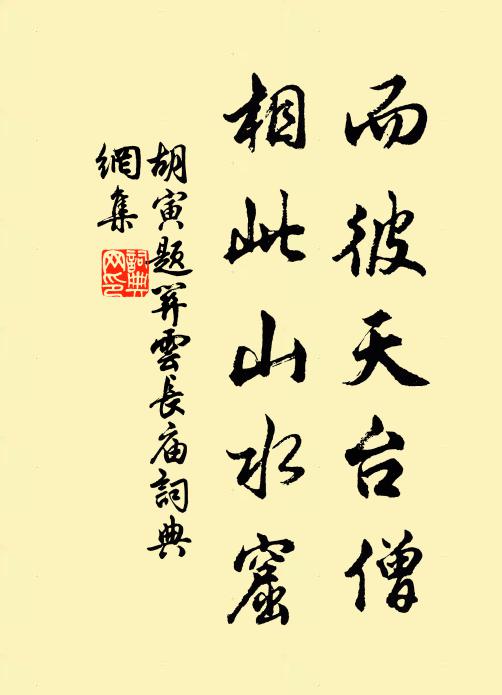 而彼天台僧
相此山水窟
胡寅题关雲長庙詞典
網集
詞典
网印